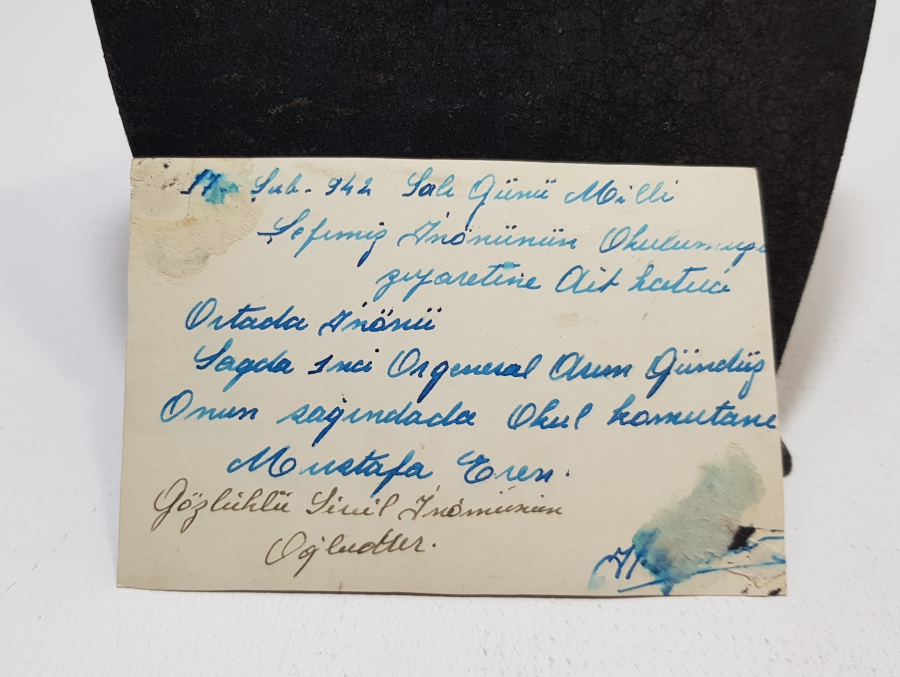 17. Şub. 942 Salı Günü Milli
Şefimiz İnönünün Okulumuza
ziyaretine Ait hatıra
Ortada İnönü
Sagda 1nci Orgeneral Asım Gündüz
Onun sağındada Okul komutanı
Mustafa Eren.
Gözlüklü Sivil İnönünün
Oğludur.